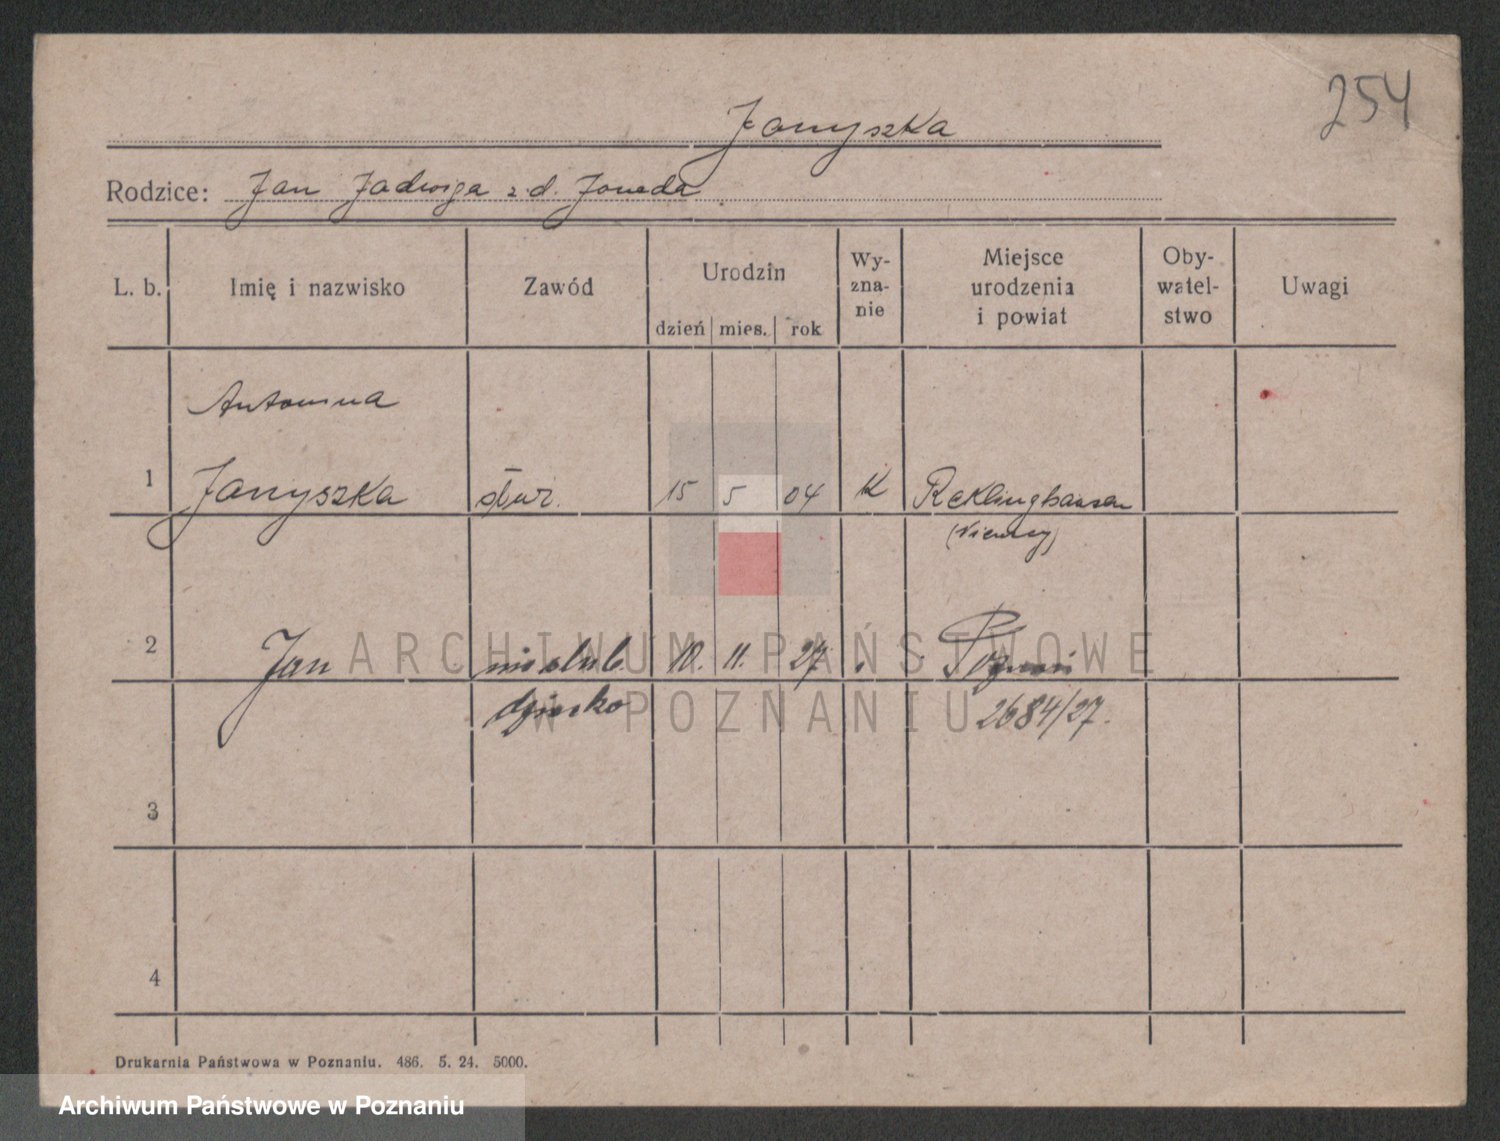 254
Janyszka
Rodzice: Jan Jadwiga z d. Joneda
L. b. Imię i nazwisko Zawód Urodzin dzień mies. rok Wy-zna-nie Miejsce urodzenia i powiat Oby-watel-stwo Uwagi
Antonina
1 Janyszka służ. 15 5 04 K Reklinghausen
(Niemcy)
2 Jan nieślub. 10. 11. 27 Poznań
dziecko 2684/27.
3
4
Drukarnia Państwowa w Poznaniu. 486. 5. 24. 5000.
ARCHIWUM PAŃSTWOWE
W POZNANIU
Archiwum Państwowe w Poznaniu